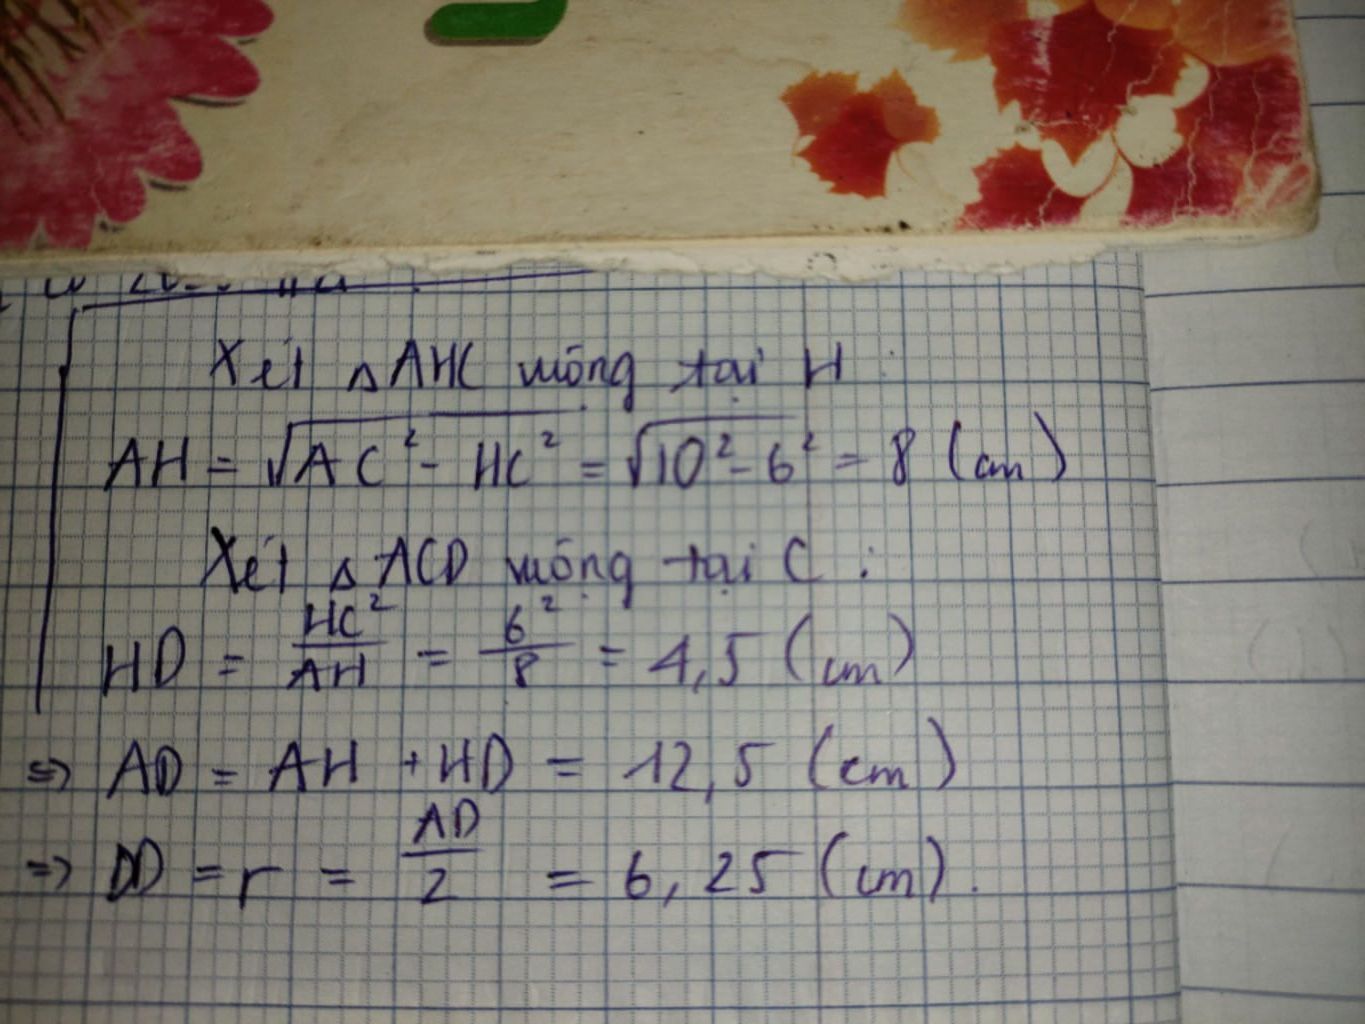 Xét △AHC vuông tại H :
AH = √AC² - HC² = √10² - 6² = 8 (cm)
Xét △ACD vuông tại C :
HD = HC²/AH = 6²/8 = 4,5 (cm)
=> AD = AH + HD = 12,5 (cm)
=> OD = r = AD/2 = 6,25 (cm).